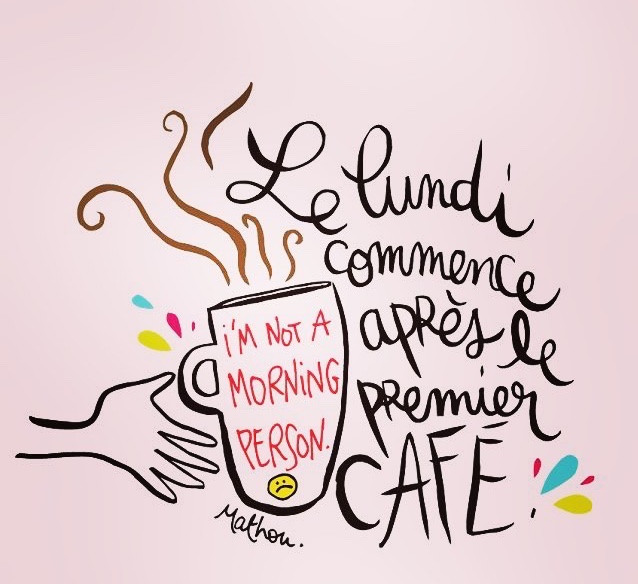 Le lundi
commence
après le
premier
CAFÉ.
i'M NOT A
MORNiNG
PERSON.
Mathou.